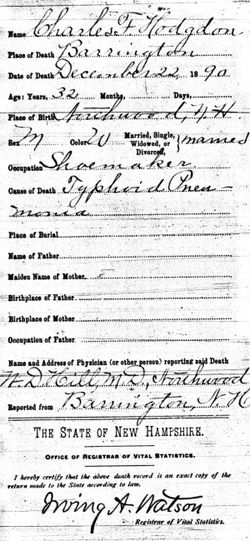 Name Charles F. Hodgdon
Place of Death Barrington
Date of Death December 22, 1890
Age: Years, 32 Months, Days,
Place of Birth Northwood, N.H.
Sex M Color W Married, Single, Widowed, or Divorced, } married
Occupation Shoemaker
Cause of Death Typhoid Pneu-
monia
Place of Burial
Name of Father
Maiden Name of Mother
Birthplace of Father
Birthplace of Mother
Occupation of Father
Name and Address of Physician (or other person) reporting said Death
W. D. Hill, M.D., Northwood
Reported from Barrington, N.H
THE STATE OF NEW HAMPSHIRE.
OFFICE OF REGISTRAR OF VITAL STATISTICS.
I hereby certify that the above death record is an exact copy of the
return made to the State according to law.
Irving A. Watson
Registrar of Vital Statistics.